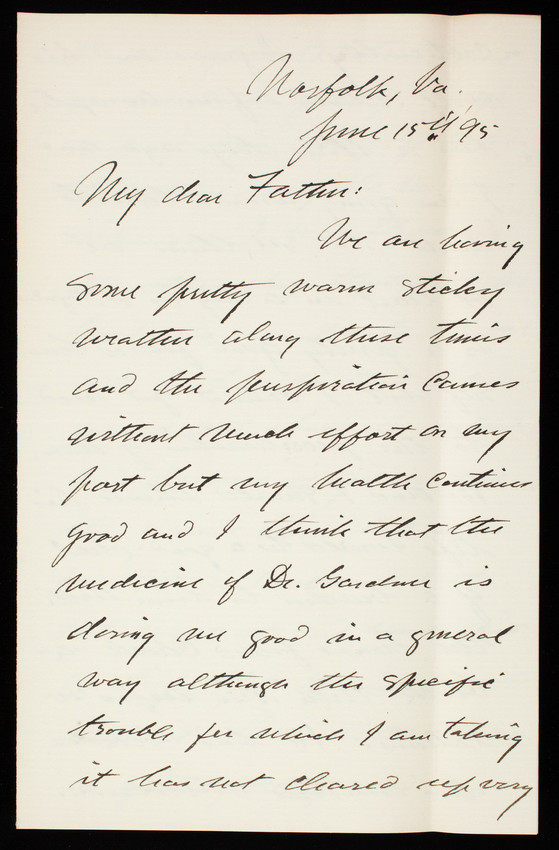 Norfolk, Va.
June 15th '95
My dear Father:
We are having
some pretty warm sticky
weather along these times
and the perspiration comes
without much effort on my
part but my health continues
good and I think that the
medicine of Dr. Gardner is
doing me good in a general
way although the specific
trouble for which I am taking
it has not cleared up very